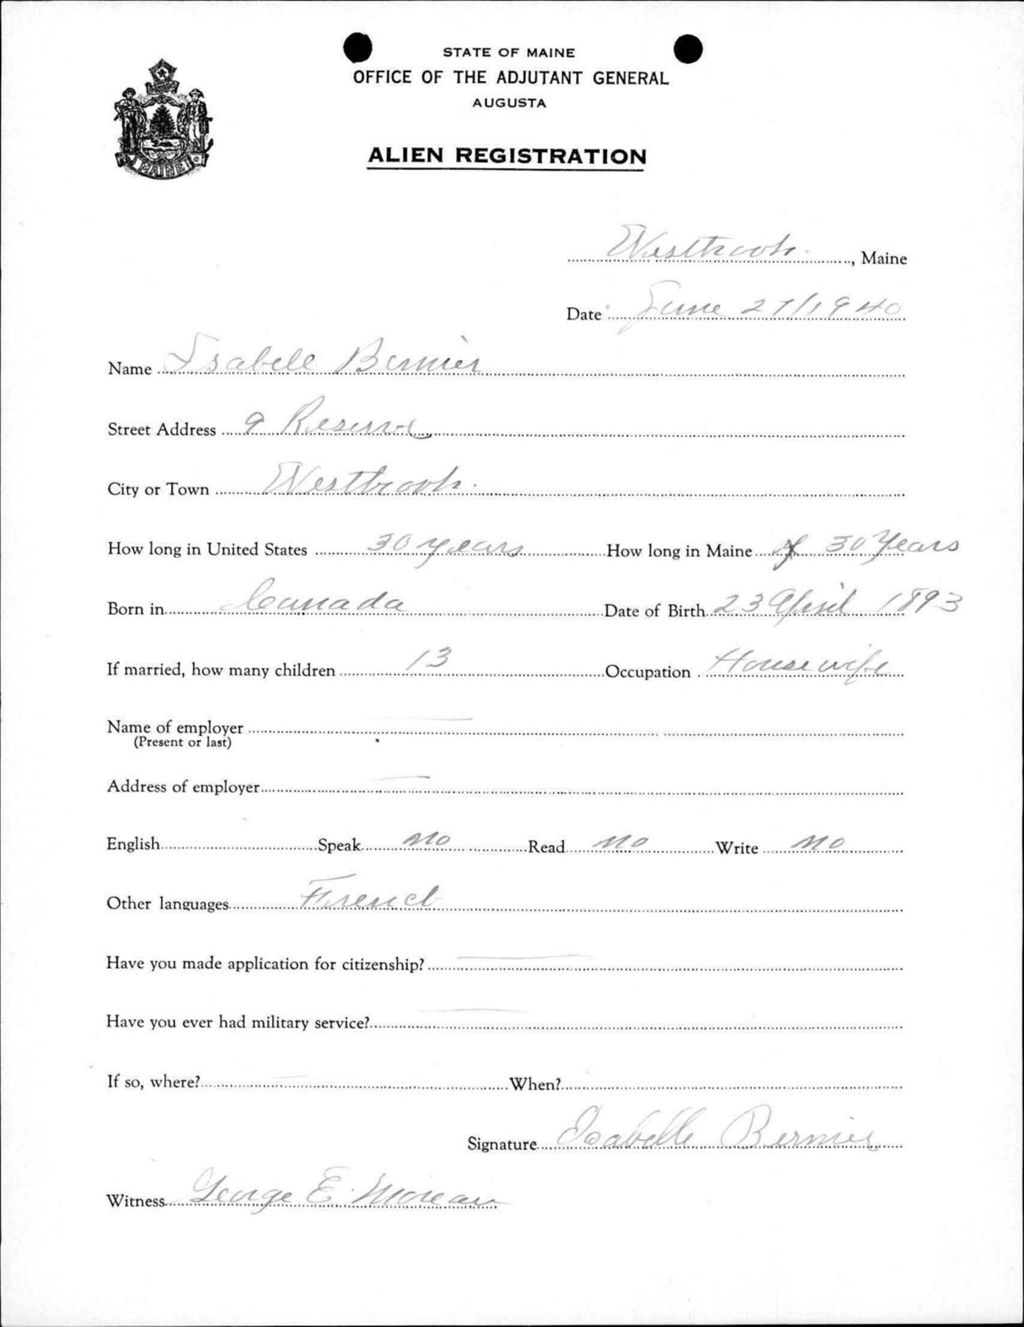 STATE OF MAINE
OFFICE OF THE ADJUTANT GENERAL
AUGUSTA
ALIEN REGISTRATION
MAINE
Westbrook, Maine
Date June 27/1940
Name Isabell Bernier
Street Address 9 Reserve
City or Town Westbrook.
How long in United States 30 years How long in Maine 30 Years
Born in Canada Date of Birth 23 April 1893
If married, how many children 13 Occupation Housewife
Name of employer
(Present or last)
Address of employer
English Speak no Read no Write no
Other languages French
Have you made application for citizenship?
Have you ever had military service?
If so, where? When?
Signature Isabelle Bernier
Witness George E. Moreau